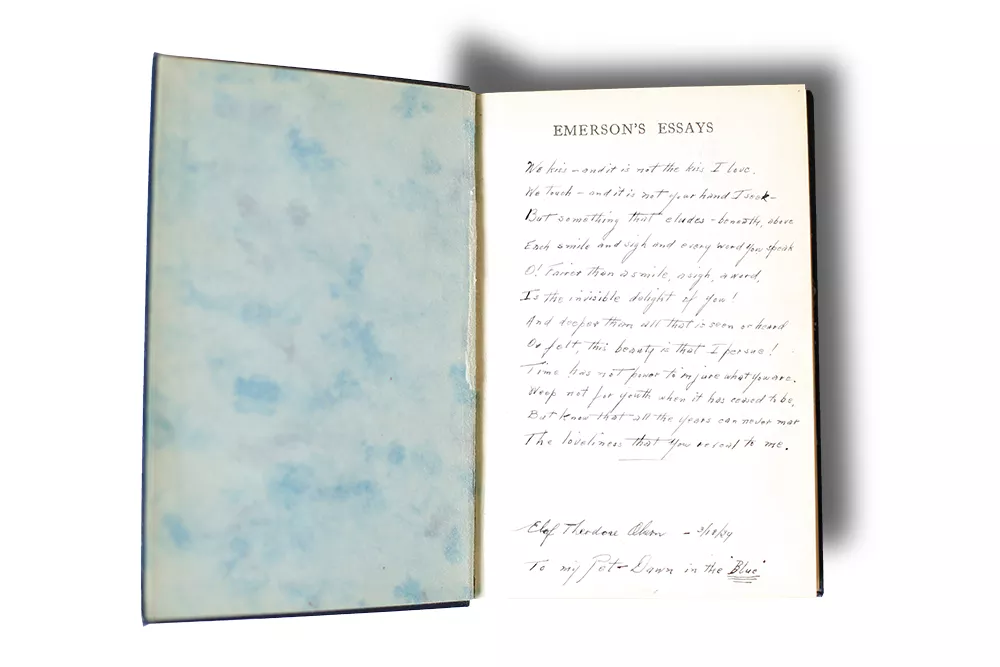 EMERSON'S ESSAYS
We kiss – and it is not the kiss I love.
We touch – and it is not your hand I seek –
But something that eludes – beneath, above
Each smile and sigh and every word you speak
O! Fairer than a smile, a sigh, a word,
Is the invisible delight of you!
And deeper than all that is seen or heard
Or felt, this beauty is that I persue!
Time has not power to injure what you are.
Weep not for youth when it has ceased to be,
But know that all the years can never mar
The loveliness that you reveal to me.
Elof Theodore Olson – 3/18/29
To my Pet – Dawn in the "Blue"